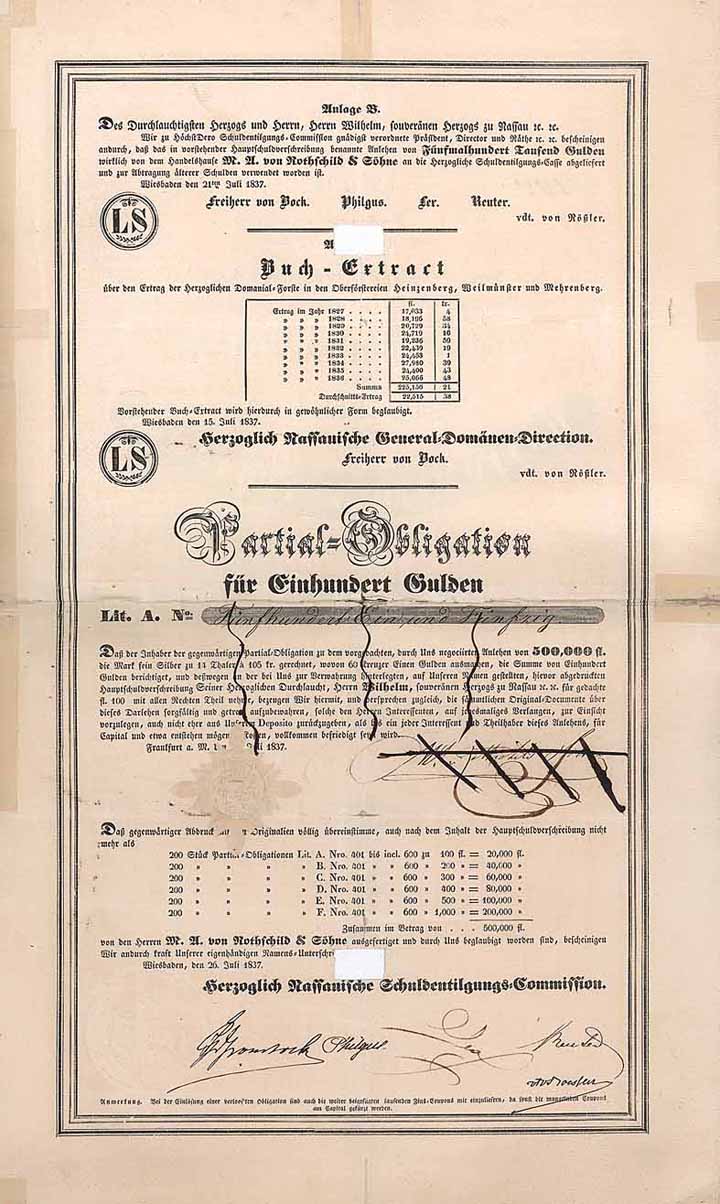 Anlage B.
Des Durchlauchtigsten Herzogs und Herrn, Herrn Wilhelm, souveränen Herzogs zu Nassau ꝛc. ꝛc.
Wir zu HöchstDero Schuldentilgungs-Commission gnädigst verordnete Präsident, Director und Räthe ꝛc. ꝛc. bescheinigen
andurch, daß das in vorstehender Hauptschuldverschreibung benannte Anlehen von Fünfmalhundert Tausend Gulden
wirklich von dem Handelshause M. A. von Rothschild & Söhne an die Herzogliche Schuldentilgungs-Casse abgeliefert
und zur Abtragung älterer Schulden verwendet worden ist.
Wiesbaden den 21ten Juli 1837.
LS
Freiherr von Bock. Philgus. Ler. Reuter.
vdt. von Rößler.
A
Buch-Extract
über den Ertrag der Herzoglichen Domanial-Forste in den Oberförstereien Heinzenberg, Weilmünster und Mehrenberg.
fl. kr.
Ertrag im Jahr 1827 . . . . 17,033 4
„ „ „ 1828 . . . . 18,196 58
„ „ „ 1829 . . . . 20,729 34
„ „ „ 1830 . . . . 24,719 16
„ „ „ 1831 . . . . 19,236 50
„ „ „ 1832 . . . . 22,439 19
„ „ „ 1833 . . . . 24,453 1
„ „ „ 1834 . . . . 27,980 39
„ „ „ 1835 . . . . 24,400 43
„ „ „ 1836 . . . . 25,066 48
Summa 225,156 21
Durchschnitts-Ertrag 22,515 38
Vorstehender Buch-Extract wird hierdurch in gewöhnlicher Form beglaubigt.
Wiesbaden den 15. Juli 1837.
LS
Herzoglich Nassauische General-Domänen-Direction.
Freiherr von Bock.
vdt. von Rößler.
Partial-Obligation
für Einhundert Gulden
Lit. A. No. Fünfhundert Ein und Fünfzig.
Daß der Inhaber der gegenwärtigen Partial-Obligation zu dem vorgedachten, durch Uns negociirten Anlehen von 500,000 fl.
die Mark fein Silber zu 14 Thaler à 105 kr. gerechnet, wovon 60 Kreuzer Einen Gulden ausmachen, die Summe von Einhundert
Gulden berichtiget, und deßwegen an der bei Uns zur Verwahrung hinterlegten, auf Unseren Namen gestellten, hievor abgedruckten
Hauptschuldverschreibung Seiner Herzoglichen Durchlaucht, Herrn Wilhelm, souveränen Herzogs zu Nassau ꝛc. ꝛc. für gedachte
fl. 100 mit allen Rechten Theil nehme, bezeugen Wir hiermit, und versprechen zugleich, die sämmtlichen Original-Documente über
dieses Darlehen sorgfältig und getreu aufzubewahren, solche den Herren Interessenten, auf jedesmaliges Verlangen, zur Einsicht
vorzulegen, auch nicht eher aus Unserem Deposito zurückzugeben, als bis ein jeder Interessent und Theilhaber dieses Anlehens, für
Capital und etwa entstehen mögende Kosten, vollkommen befriedigt sein wird.
Frankfurt a. M. Juli 1837.
Daß gegenwärtiger Abdruck Originalien völlig übereinstimme, auch nach dem Inhalt der Hauptschuldverschreibung nicht
mehr als
200 Stück Partial-Obligationen Lit. A. Nro. 401 bis incl. 600 zu 100 fl. = 20,000 fl.
200 „ „ „ „ B. Nro. 401 „ „ 600 „ 200 „ = 40,000 „
200 „ „ „ „ C. Nro. 401 „ „ 600 „ 300 „ = 60,000 „
200 „ „ „ „ D. Nro. 401 „ „ 600 „ 400 „ = 80,000 „
200 „ „ „ „ E. Nro. 401 „ „ 600 „ 500 „ = 100,000 „
200 „ „ „ „ F. Nro. 401 „ „ 600 „ 1,000 „ = 200,000 „
Zusammen im Betrag von . . . 500,000 fl.
von den Herren M. A. von Rothschild & Söhne ausgefertiget und durch Uns beglaubigt worden sind, bescheinigen
Wir andurch kraft Unserer eigenhändigen Namens-Unterschri
Wiesbaden, den 26. Juli 1837.
Herzoglich Nassauische Schuldentilgungs-Commission.
Philgus
Anmerkung. Bei der Einlösung einer verloosten Obligation sind auch die weiter beigefügten laufenden Zins-Coupons mit einzuliefern, da sonst die mangelnden Coupons
am Capital gekürzt werden.